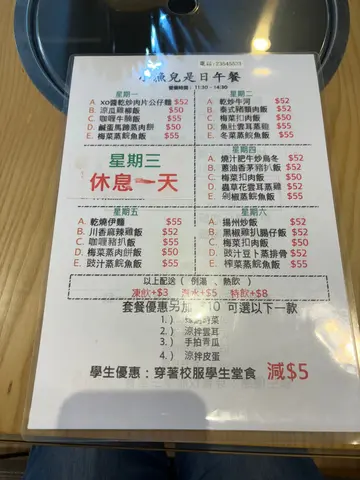 電話:23545573
小漁兒是日午餐
營業時間：11:30 - 14:30
星期一
A. xo醬乾炒肉片公仔麵 $52
B. 涼瓜雞柳飯 $50
C. 咖喱牛腩飯 $55
D. 鹹蛋馬蹄蒸肉餅 $50
E. 梅菜蒸鯇魚飯 $55
星期二
A. 乾炒牛河 $52
B. 泰式豬頸肉飯 $52
C. 梅菜扣肉飯 $50
D. 魚肚雲耳蒸雞 $55
E. 冬菜蒸鯇魚飯 $55
星期三
休息一天
星期四
A. 燒汁肥牛炒烏冬 $52
B. 蔥油香茅豬扒飯 $52
C. 梅菜扣肉飯 $50
D. 蟲草花雲耳蒸雞 $52
E. 剁椒蒸鯇魚飯 $55
星期五
A. 乾燒伊麵 $52
B. 川香麻辣雞飯 $52
C. 咖喱豬扒飯 $55
D. 梅菜蒸肉餅飯 $50
E. 豉汁蒸鯇魚飯 $55
星期六
A. 揚州炒飯 $52
B. 黑椒雞扒腸仔飯 $52
C. 梅菜扣肉飯 $50
D. 豉汁豆卜蒸排骨 $52
E. 榨菜蒸鯇魚飯 $55
以上配送 ( 例湯 、熱飲 )
凍飲+$3 汽水+$5 特飲+$8
套餐優惠另加 $10 可選以下一款
1.) 野菜
2.) 涼拌雲耳
3.) 手拍青瓜
4.) 涼拌皮蛋
學生優惠：穿著校服學生堂食 減$5